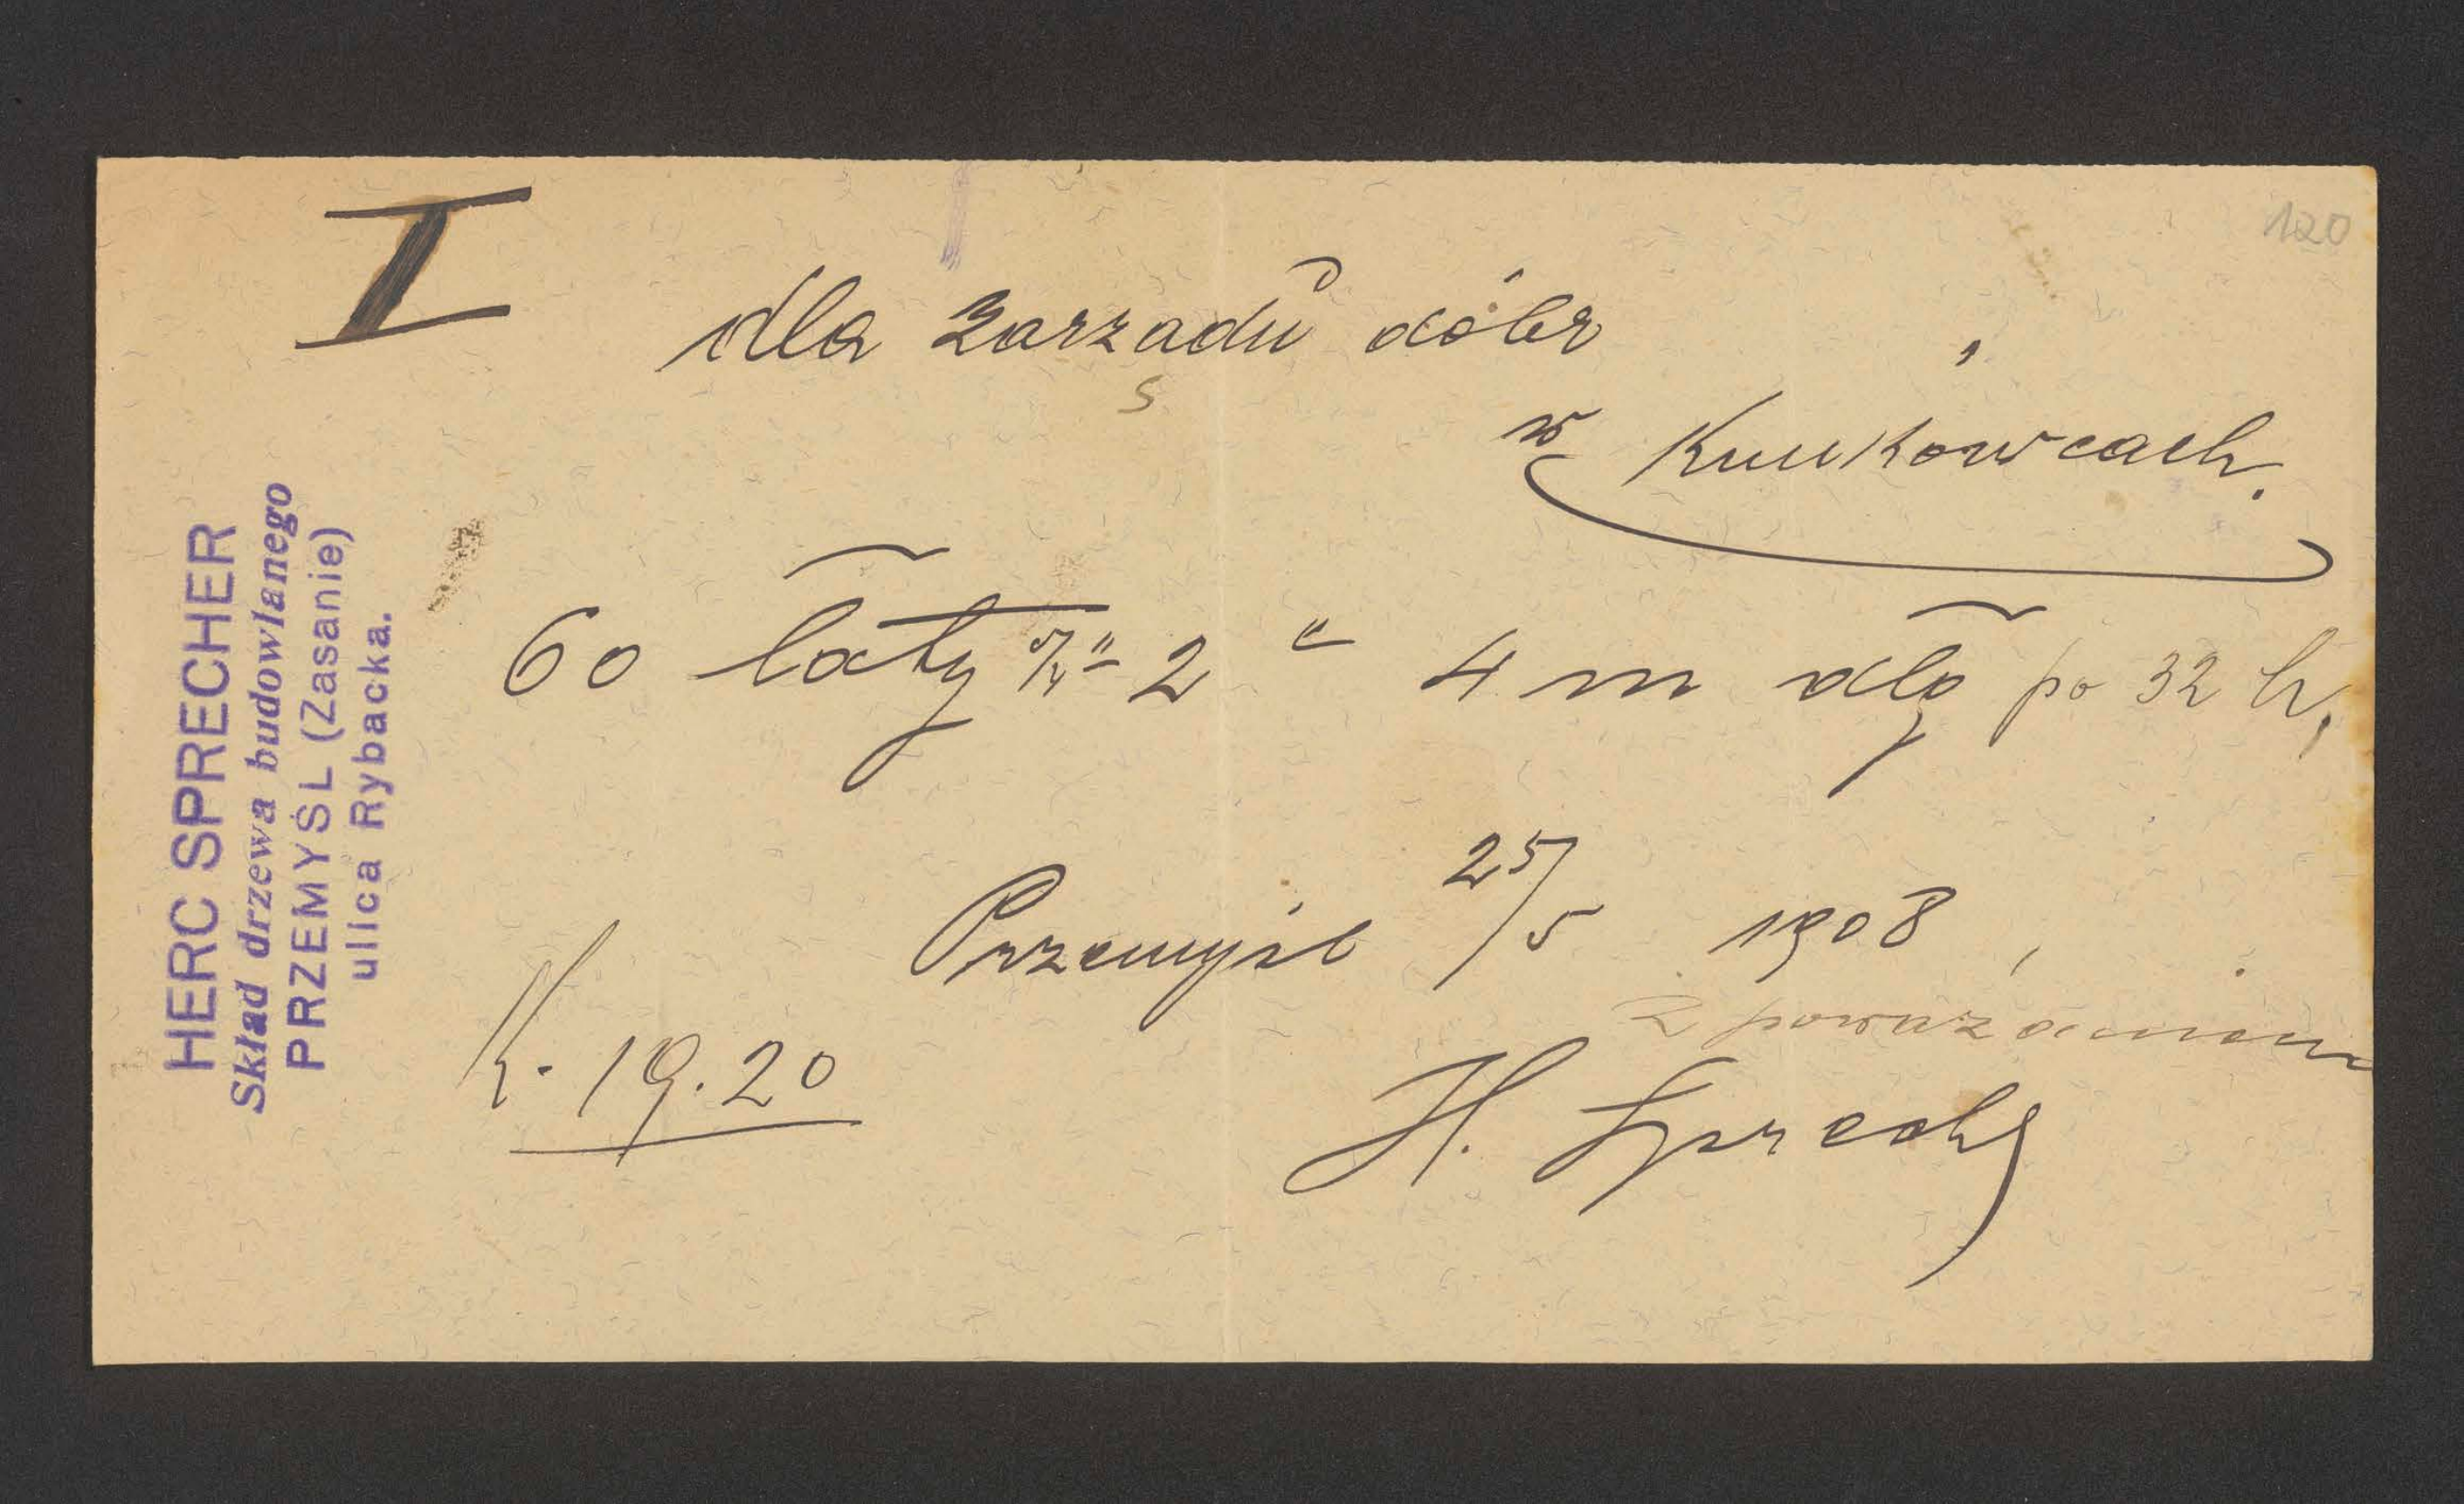 I
120
dla Zarządu dóbr
w Kunkowcach.
60 łaty 5/4" 2" 4 m dłg po 32 h,
Przemyśl 25/5 1908,
z poważaniem
K. 19.20
H. Sprecher
HERC SPRECHER
Skład drzewa budowlanego
PRZEMYŚL (Zasanie)
ulica Rybacka.